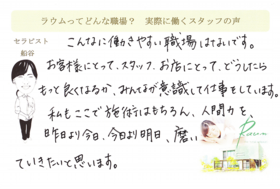 ラウムってどんな職場？　実際に働くスタッフの声
セラピスト
船谷
こんなに働きやすい職場はないです。
お客様にとって、スタッフ、お店にとって、どうしたら
もっと良くなるか、みんなが意識して仕事をしています。
私もここで施術はもちろん、人間力を、
昨日より今日、今日より明日、磨い
ていきたいと思います。
Raum